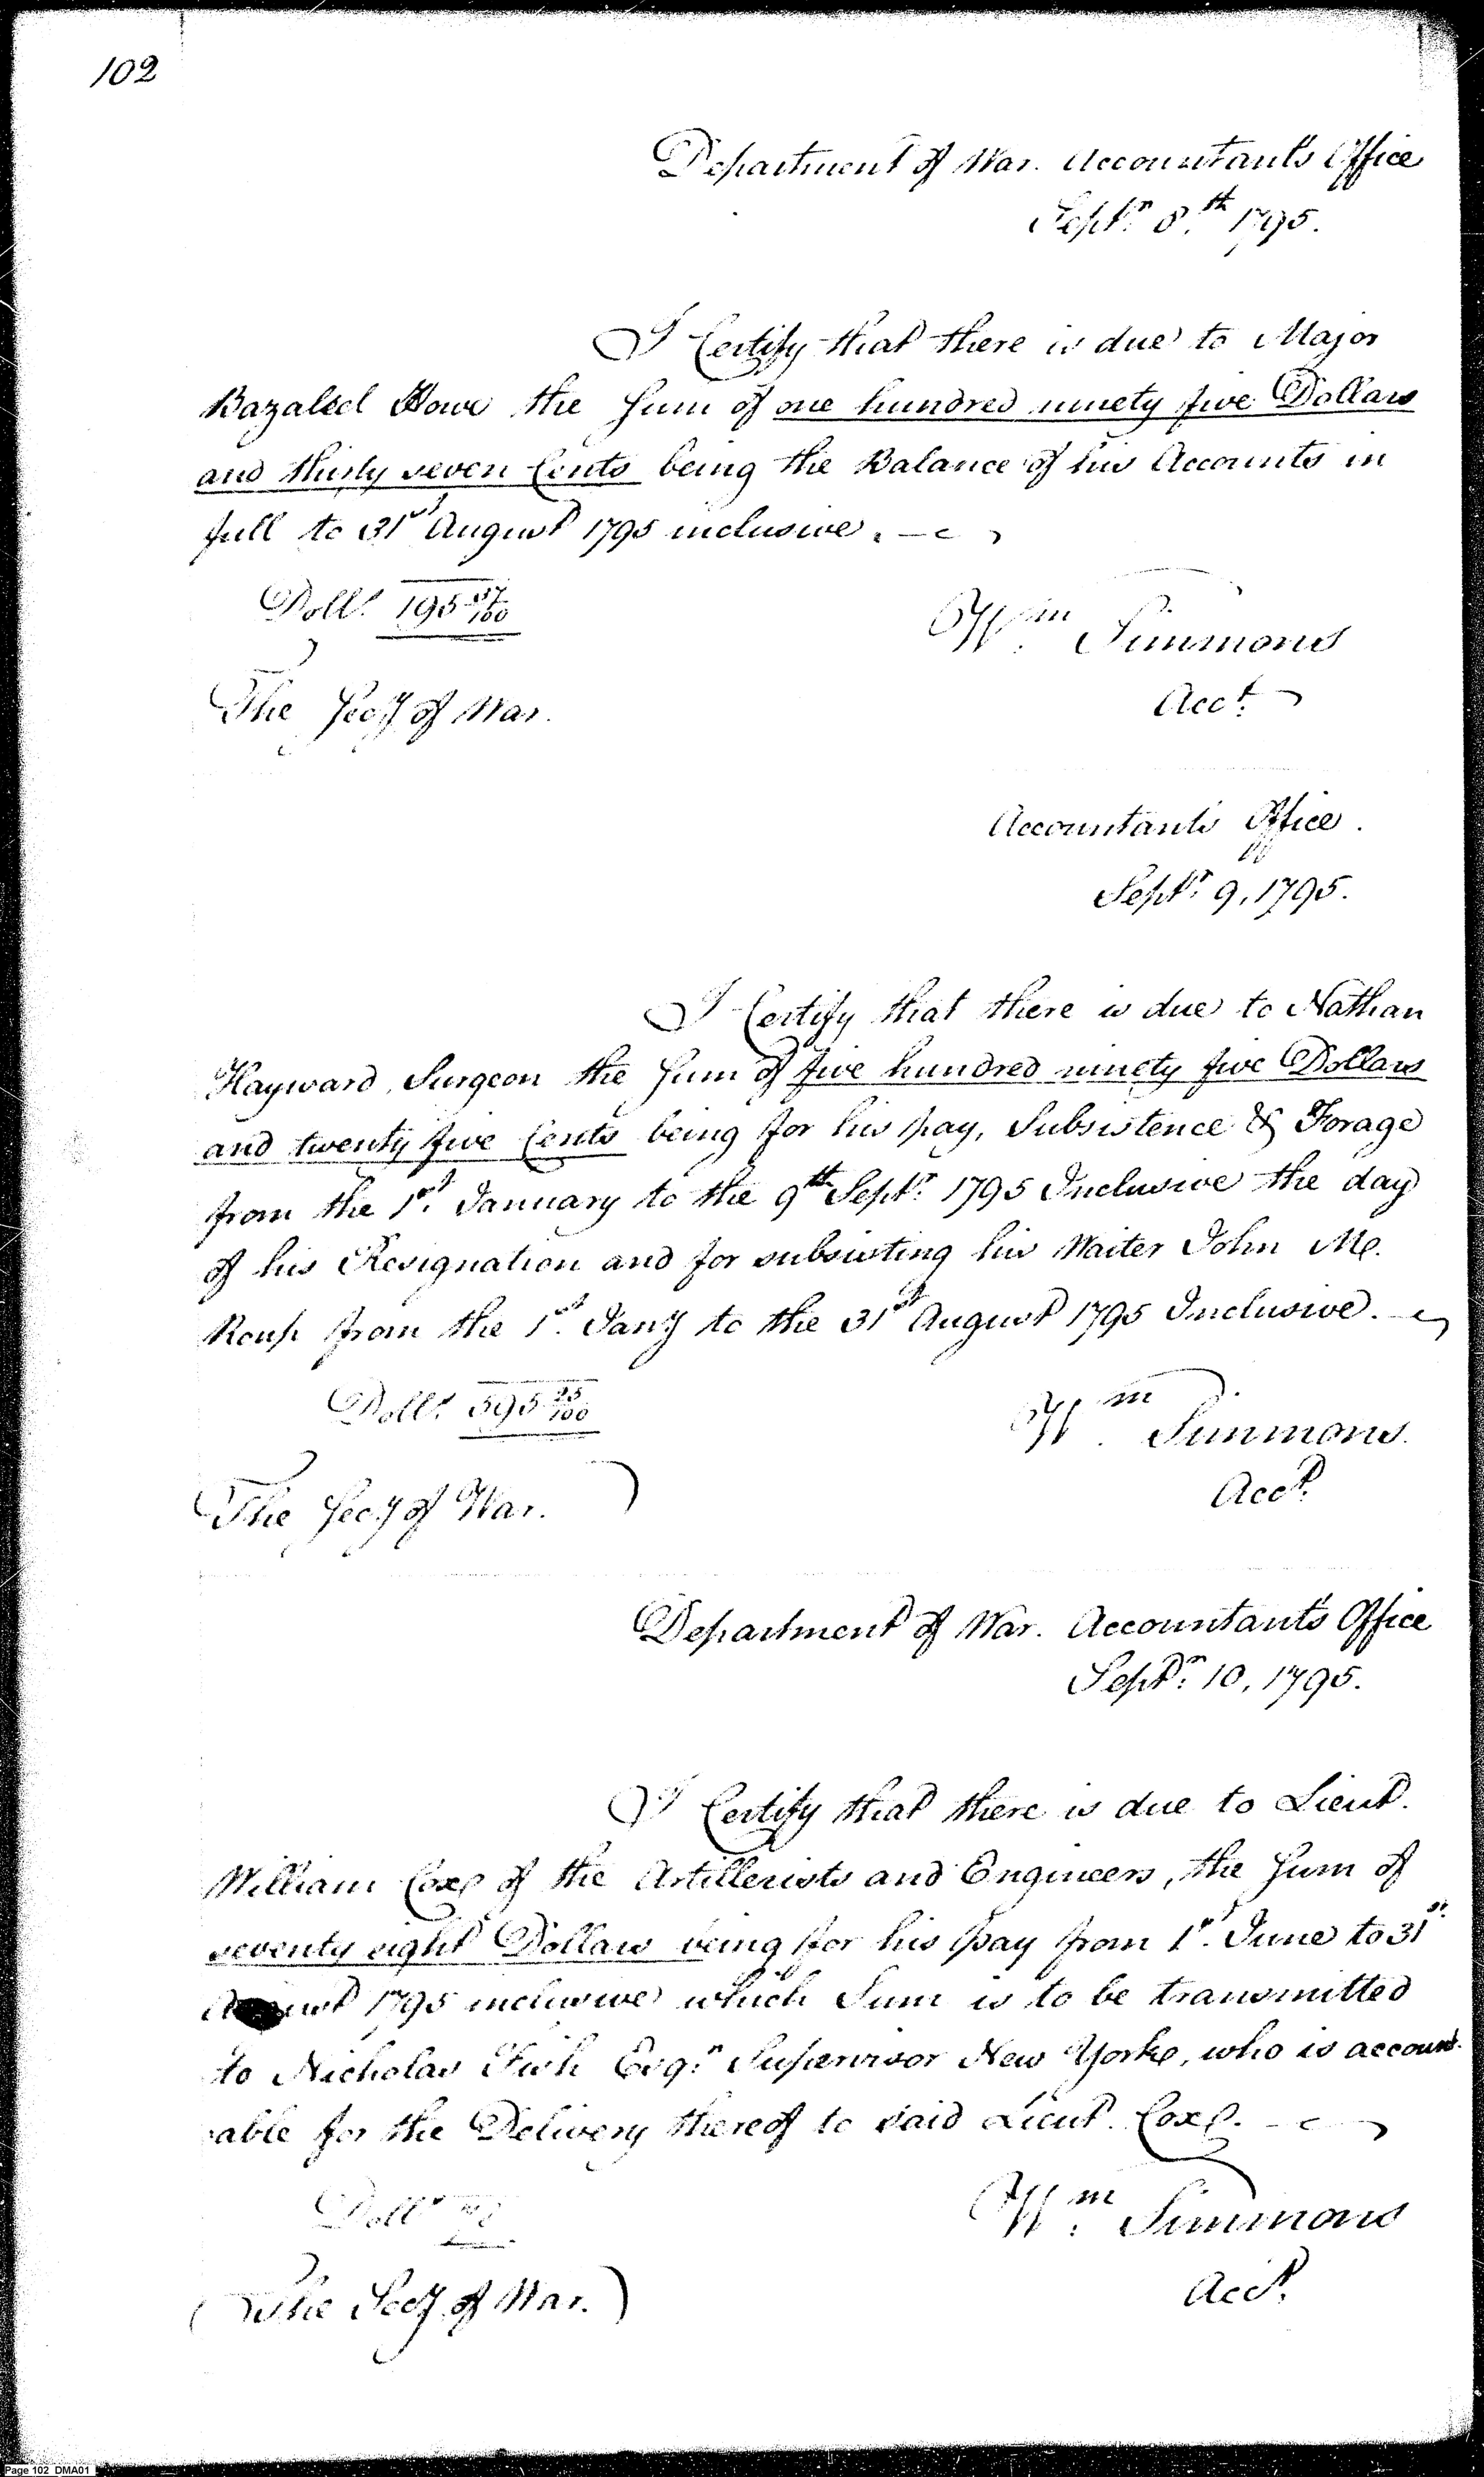 102
Department of War. Accountant's Office
Sept.r 8.th 1795.
I Certify that there is due to Major
Bazaleel Howe the Sum of one hundred ninety five Dollars
and thirty seven Cents being the Balance of his Accounts in
full to 31st August 1795 inclusive.
Doll.s 195 37/100
Wm. Simmons
The Secy of War.
Acct.
Accountants Office.
Sept.r 9, 1795.
I Certify that there is due to Nathan
Hayward, Surgeon the Sum of five hundred ninety five Dollars
and twenty five Cents being for his pay, Subsistence & Forage
from the 1st. January to the 9th Sept.r 1795 Inclusive the day
of his Resignation and for subsisting his Waiter John Mc.
Roup from the 1st. Jany to the 31st August 1795 Inclusive.
Doll.s 595 25/100
Wm. Simmons.
Acct.
The Secy of War.
Department of War. Accountant's Office
Sept.r 10, 1795.
I Certify that there is due to Lieut.
William Coxe of the Artillerists and Engineers, the Sum of
seventy eight Dollars being for his pay from 1st. June to 31st.
August 1795 inclusive which Sum is to be transmitted
to Nicholas Fish Esq.r Supervisor New Yorke, who is account-
able for the Delivery thereof to said Lieut. Coxe.
Doll.s 78
Wm. Simmons
(The Secy of War.)
Acct.
Page 102 DMA01